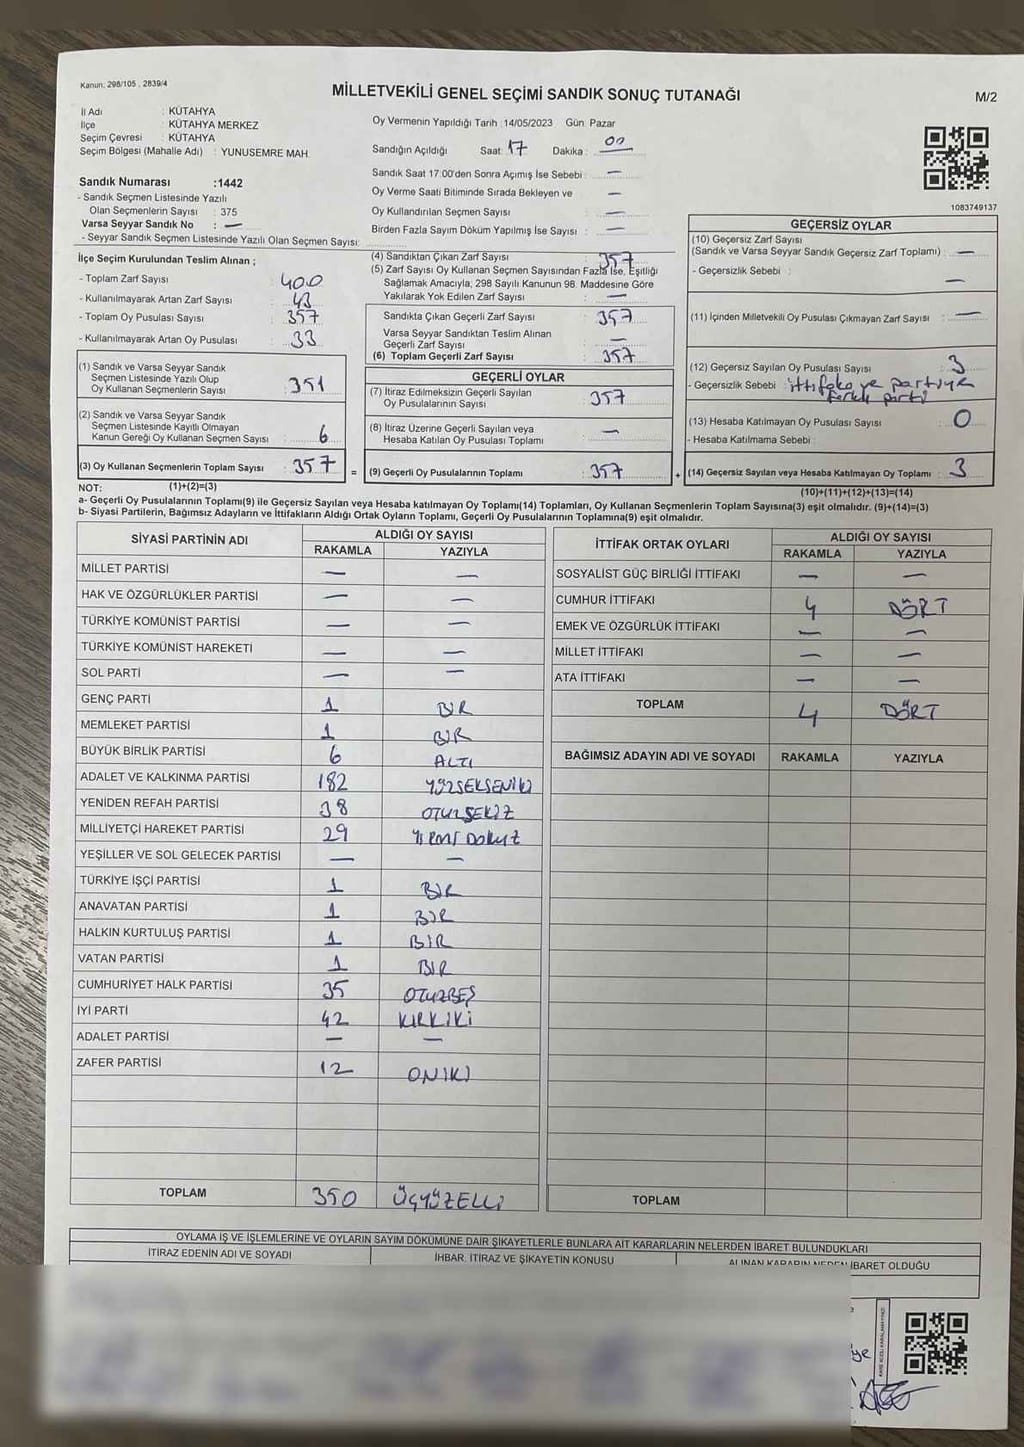 Kanun: 298/105 , 2839/4
MİLLETVEKİLİ GENEL SEÇİMİ SANDIK SONUÇ TUTANAĞI
M/2
İl Adı : KÜTAHYA
İlçe : KÜTAHYA MERKEZ
Seçim Çevresi : KÜTAHYA
Seçim Bölgesi (Mahalle Adı) : YUNUSEMRE MAH.
Sandık Numarası :1442
- Sandık Seçmen Listesinde Yazılı
Olan Seçmenlerin Sayısı : 375
Varsa Seyyar Sandık No : —
- Seyyar Sandık Seçmen Listesinde Yazılı Olan Seçmen Sayısı:
Oy Vermenin Yapıldığı Tarih :14/05/2023 Gün: Pazar
Sandığın Açıldığı Saat: 17 Dakika : 00
Sandık Saat 17:00'den Sonra Açımış İse Sebebi : —
Oy Verme Saati Bitiminde Sırada Bekleyen ve —
Oy Kullandırılan Seçmen Sayısı : —
Birden Fazla Sayım Döküm Yapılmış İse Sayısı : —
1083749137
İlçe Seçim Kurulundan Teslim Alınan ;
- Toplam Zarf Sayısı : 400
- Kullanılmayarak Artan Zarf Sayısı : 43
- Toplam Oy Pusulası Sayısı : 357
- Kullanılmayarak Artan Oy Pusulası : 33
(1) Sandık ve Varsa Seyyar Sandık
Seçmen Listesinde Yazılı Olup
Oy Kullanan Seçmenlerin Sayısı : 351
(2) Sandık ve Varsa Seyyar Sandık
Seçmen Listesinde Kayıtlı Olmayan
Kanun Gereği Oy Kullanan Seçmen Sayısı : 6
(3) Oy Kullanan Seçmenlerin Toplam Sayısı : 357
(4) Sandıktan Çıkan Zarf Sayısı : 357
(5) Zarf Sayısı Oy Kullanan Seçmen Sayısından Fazla İse, Eşitliği
Sağlamak Amacıyla; 298 Sayılı Kanunun 98. Maddesine Göre
Yakılarak Yok Edilen Zarf Sayısı : —
Sandıkta Çıkan Geçerli Zarf Sayısı : 357
Varsa Seyyar Sandıktan Teslim Alınan
Geçerli Zarf Sayısı : —
(6) Toplam Geçerli Zarf Sayısı : 357
GEÇERLİ OYLAR
(7) İtiraz Edilmeksizin Geçerli Sayılan
Oy Pusulalarının Sayısı : 357
(8) İtiraz Üzerine Geçerli Sayılan veya
Hesaba Katılan Oy Pusulası Toplamı : —
= (9) Geçerli Oy Pusulalarının Toplamı : 357
GEÇERSİZ OYLAR
(10) Geçersiz Zarf Sayısı
(Sandık ve Varsa Seyyar Sandık Geçersiz Zarf Toplamı) : —
- Geçersizlik Sebebi : —
(11) İçinden Milletvekili Oy Pusulası Çıkmayan Zarf Sayısı : —
(12) Geçersiz Sayılan Oy Pusulası Sayısı : 3
- Geçersizlik Sebebi : ittifaka ve partiye
farklı parti
(13) Hesaba Katılmayan Oy Pusulası Sayısı : 0
- Hesaba Katılmama Sebebi :
+ (14) Geçersiz Sayılan veya Hesaba Katılmayan Oy Toplamı : 3
NOT: (1)+(2)=(3) (10)+(11)+(12)+(13)=(14)
a- Geçerli Oy Pusulalarının Toplamı(9) ile Geçersiz Sayılan veya Hesaba katılmayan Oy Toplamı(14) Toplamları, Oy Kullanan Seçmenlerin Toplam Sayısına(3) eşit olmalıdır. (9)+(14)=(3)
b- Siyasi Partilerin, Bağımsız Adayların ve İttifakların Aldığı Ortak Oyların Toplamı, Geçerli Oy Pusulalarının Toplamına(9) eşit olmalıdır.
SİYASİ PARTİNİN ADI ALDIĞI OY SAYISI
RAKAMLA YAZIYLA
MİLLET PARTİSİ — —
HAK VE ÖZGÜRLÜKLER PARTİSİ — —
TÜRKİYE KOMÜNİST PARTİSİ — —
TÜRKİYE KOMÜNİST HAREKETİ — —
SOL PARTİ — —
GENÇ PARTİ 1 BİR
MEMLEKET PARTİSİ 1 BİR
BÜYÜK BİRLİK PARTİSİ 6 ALTI
ADALET VE KALKINMA PARTİSİ 182 YÜZSEKSENİKİ
YENİDEN REFAH PARTİSİ 38 OTUZSEKİZ
MİLLİYETÇİ HAREKET PARTİSİ 29 YİRMİ DOKUZ
YEŞİLLER VE SOL GELECEK PARTİSİ — —
TÜRKİYE İŞÇİ PARTİSİ 1 BİR
ANAVATAN PARTİSİ 1 BİR
HALKIN KURTULUŞ PARTİSİ 1 BİR
VATAN PARTİSİ 1 BİR
CUMHURİYET HALK PARTİSİ 35 OTUZBEŞ
İYİ PARTİ 42 KIRKİKİ
ADALET PARTİSİ — —
ZAFER PARTİSİ 12 ONİKİ
TOPLAM 350 ÜÇYÜZELLİ
İTTİFAK ORTAK OYLARI ALDIĞI OY SAYISI
RAKAMLA YAZIYLA
SOSYALİST GÜÇ BİRLİĞİ İTTİFAKI — —
CUMHUR İTTİFAKI 4 DÖRT
EMEK VE ÖZGÜRLÜK İTTİFAKI — —
MİLLET İTTİFAKI — —
ATA İTTİFAKI — —
TOPLAM 4 DÖRT
BAĞIMSIZ ADAYIN ADI VE SOYADI RAKAMLA YAZIYLA
TOPLAM
OYLAMA İŞ VE İŞLEMLERİNE VE OYLARIN SAYIM DÖKÜMÜNE DAİR ŞİKAYETLERLE BUNLARA AİT KARARLARIN NELERDEN İBARET BULUNDUKLARI
İTİRAZ EDENİN ADI VE SOYADI İHBAR, İTİRAZ VE ŞİKAYETİN KONUSU ALINAN KARARIN NEDEN İBARET OLDUĞU